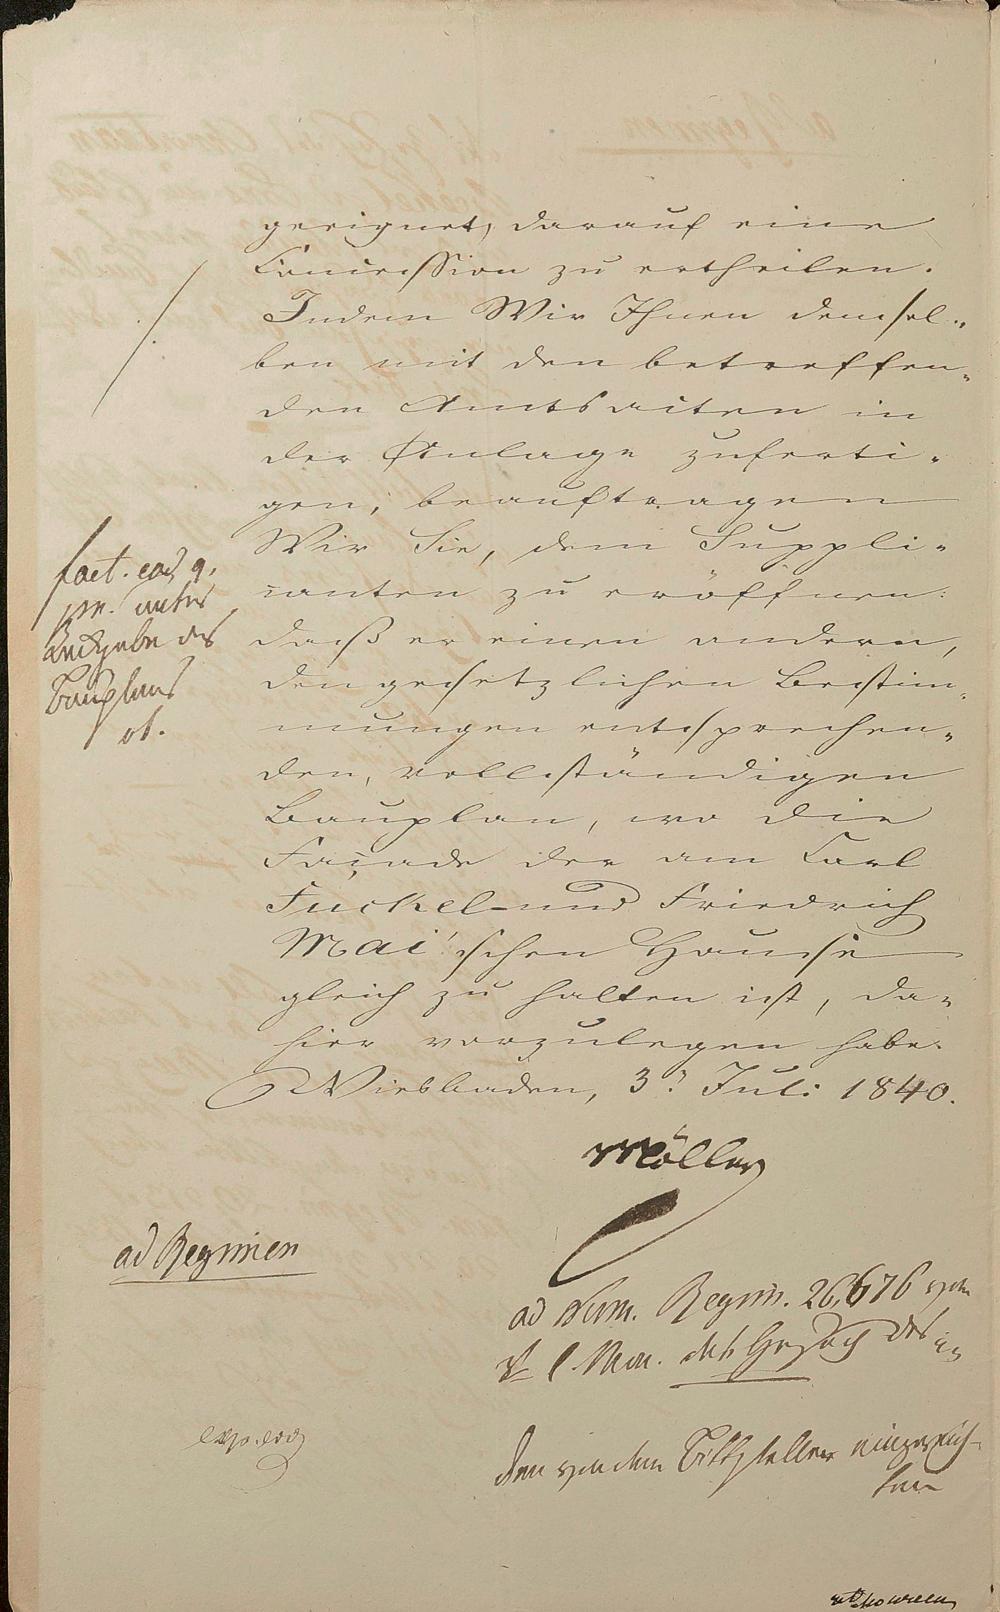 geeignet, darauf eine
Concession zu ertheilen.
Indem Wir Ihnen densel-
ben mit den betreffen-
den Amtsacten in
der Anlage zuferti-
gen, beauftragen
Wir Sie, dem Suppli-
canten zu eröffnen:
daß er einen andern,
den gesetzlichen Bestim-
mungen entsprechen-
den, vollständigen
Bauplan, wo die
Façade der am Carl
Fuckel- und Friedrich
Mai'schen Hause
gleich zu halten ist, da-
hier vorzulegen habe.
Wiesbaden, 3. Juli 1840.
Möller
fact. ead.
pr. unter
Rückgabe des
Bauplans
ad Regimen
ad Num. Regim. 26,676 vom
l. Mon. das Gesuch des
den von dem Bittsteller eingereich-
ten